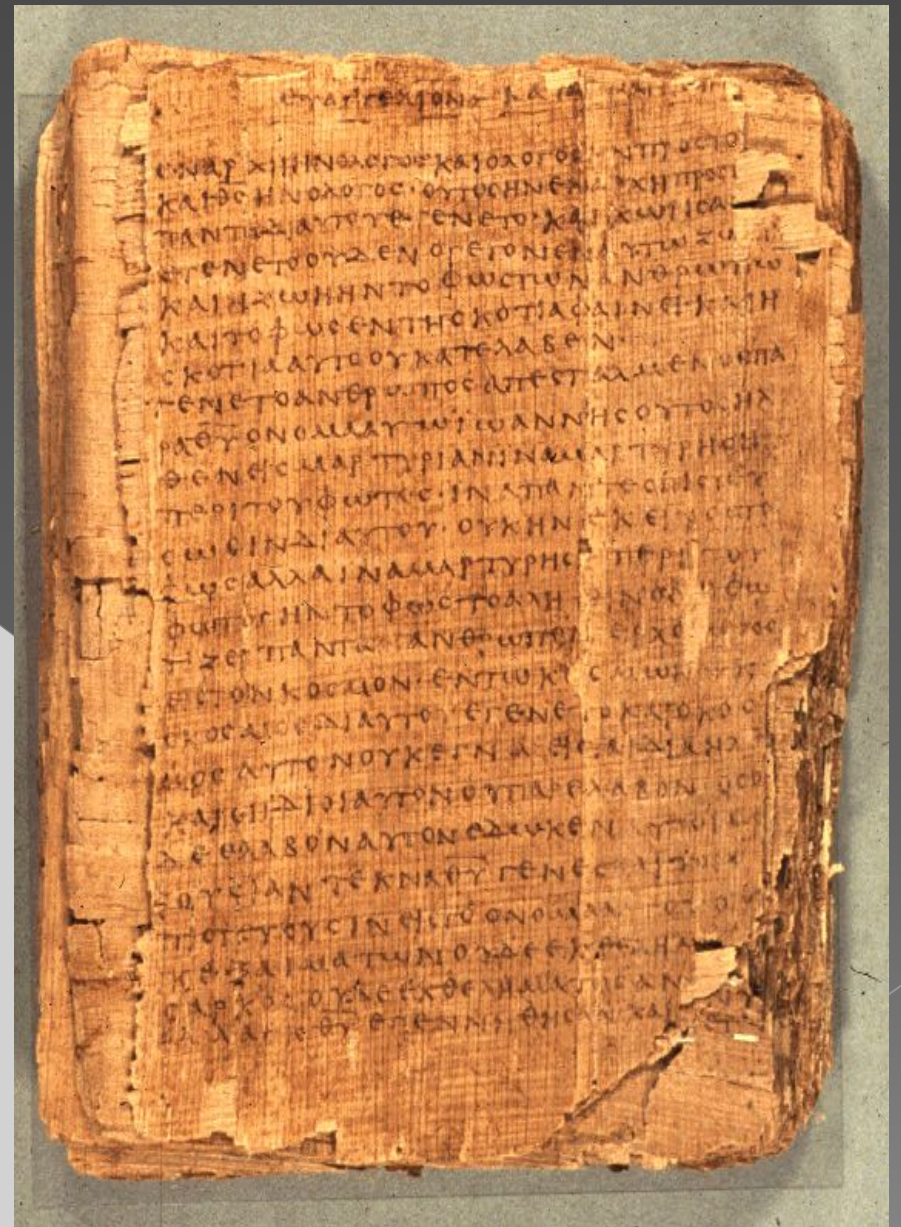 ΕΥΑΓΓΕΛΙΟΝ ΚΑΤΑ
ΕΝΑΡΧΗΗΝΟΛΟΓΟϹΚΑΙΟΛΟΓΟϹ ΗΝΠΡΟϹΤΟ
ΚΑΙΘ̅Ϲ̅ΗΝΟΛΟΓΟϹ·ΟΥΤΟϹΗΝΕΝΑΡΧΗΠΡΟϹ
ΠΑΝΤΑΔΙΑΥΤΟΥΕΓΕΝΕΤΟ·ΚΑΙΧΩΡΙϹΑ
ΕΓΕΝΕΤΟΟΥΔΕΝΟΓΕΓΟΝΕΝΕΝΑΥΤΩΖΩ
ΚΑΙΗΖΩΗΗΝΤΟΦΩϹΤΩΝΑΝΘΡΩΠΩ
ΚΑΙΤΟΦΩϹΕΝΤΗϹΚΟΤΙΑΦΑΙΝΕΙ·ΚΑΙΗ
ϹΚΟΤΙΑΑΥΤΟΟΥΚΑΤΕΛΑΒΕΝ·
ΕΓΕΝΕΤΟΑΝΘΡΩΠΟϹΑΠΕϹΤΑΛΜΕΝΟϹΠΑ
ΡΑΘ̅Υ̅ΟΝΟΜΑΑΥΤΩΪΩΑΝΝΗϹΟΥΤΟϹΗΛ
ΘΕΝΕΙϹΜΑΡΤΥΡΙΑΝΙΝΑΜΑΡΤΥΡΗϹΗ
ΠΕΡΙΤΟΥΦΩΤΟϹ·ΙΝΑΠΑΝΤΕϹΠΙϹΤΕΥ
ϹΩϹΙΝΔΙΑΥΤΟΥ·ΟΥΚΗΝΕΚΕΙΝΟϹΤΟ
ΦΩϹΑΛΛΑΙΝΑΜΑΡΤΥΡΗϹΗΠΕΡΙΤΟΥ
ΦΩΤΟϹΗΝΤΟΦΩϹΤΟΑΛΗΘΙΝΟΝΟΦΩ
ΤΙΖΕΙΠΑΝΤΑΑΝΘΡΩΠΟΝΕΡΧΟΜΕΝΟΝ
ΕΙϹΤΟΝΚΟϹΜΟΝ·ΕΝΤΩΚΟϹΜΩΗΝΚΑΙ
ΟΚΟϹΜΟϹΔΙΑΥΤΟΥΕΓΕΝΕΤΟΚΑΙΟΚΟϹ
ΜΟϹΑΥΤΟΝΟΥΚΕΓΝΩ ΕΙϹΤΑΙΔΙΑΗΛ
ΚΑΙΟΙΪΔΙΟΙΑΥΤΟΝΟΥΠΑΡΕΛΑΒΟΝ·ΟϹΟ
ΔΕΕΛΑΒΟΝΑΥΤΟΝΕΔΩΚΕΝΑΥΤΟΙϹ
ΟΥϹΙΑΝΤΕΚΝΑΘ̅Υ̅ΓΕΝΕϹΘΑΙΤΟΙϹ
ΠΙϹΤΕΥΟΥϹΙΝΕΙϹΤΟΟΝΟΜΑΑΥΤΟΥΟΥ
ΚΕΞΑΙΜΑΤΩΝΟΥΔΕΕΚΘΕΛΗΜΑ
ϹΑΡΚΟϹΟΥΔΕΕΚΘΕΛΗΜΑΤΟϹΑΝ
ΑΛΛΑΕΚΘ̅Υ̅ΕΓΕΝΝΗΘΗϹΑΝΚΑΙ